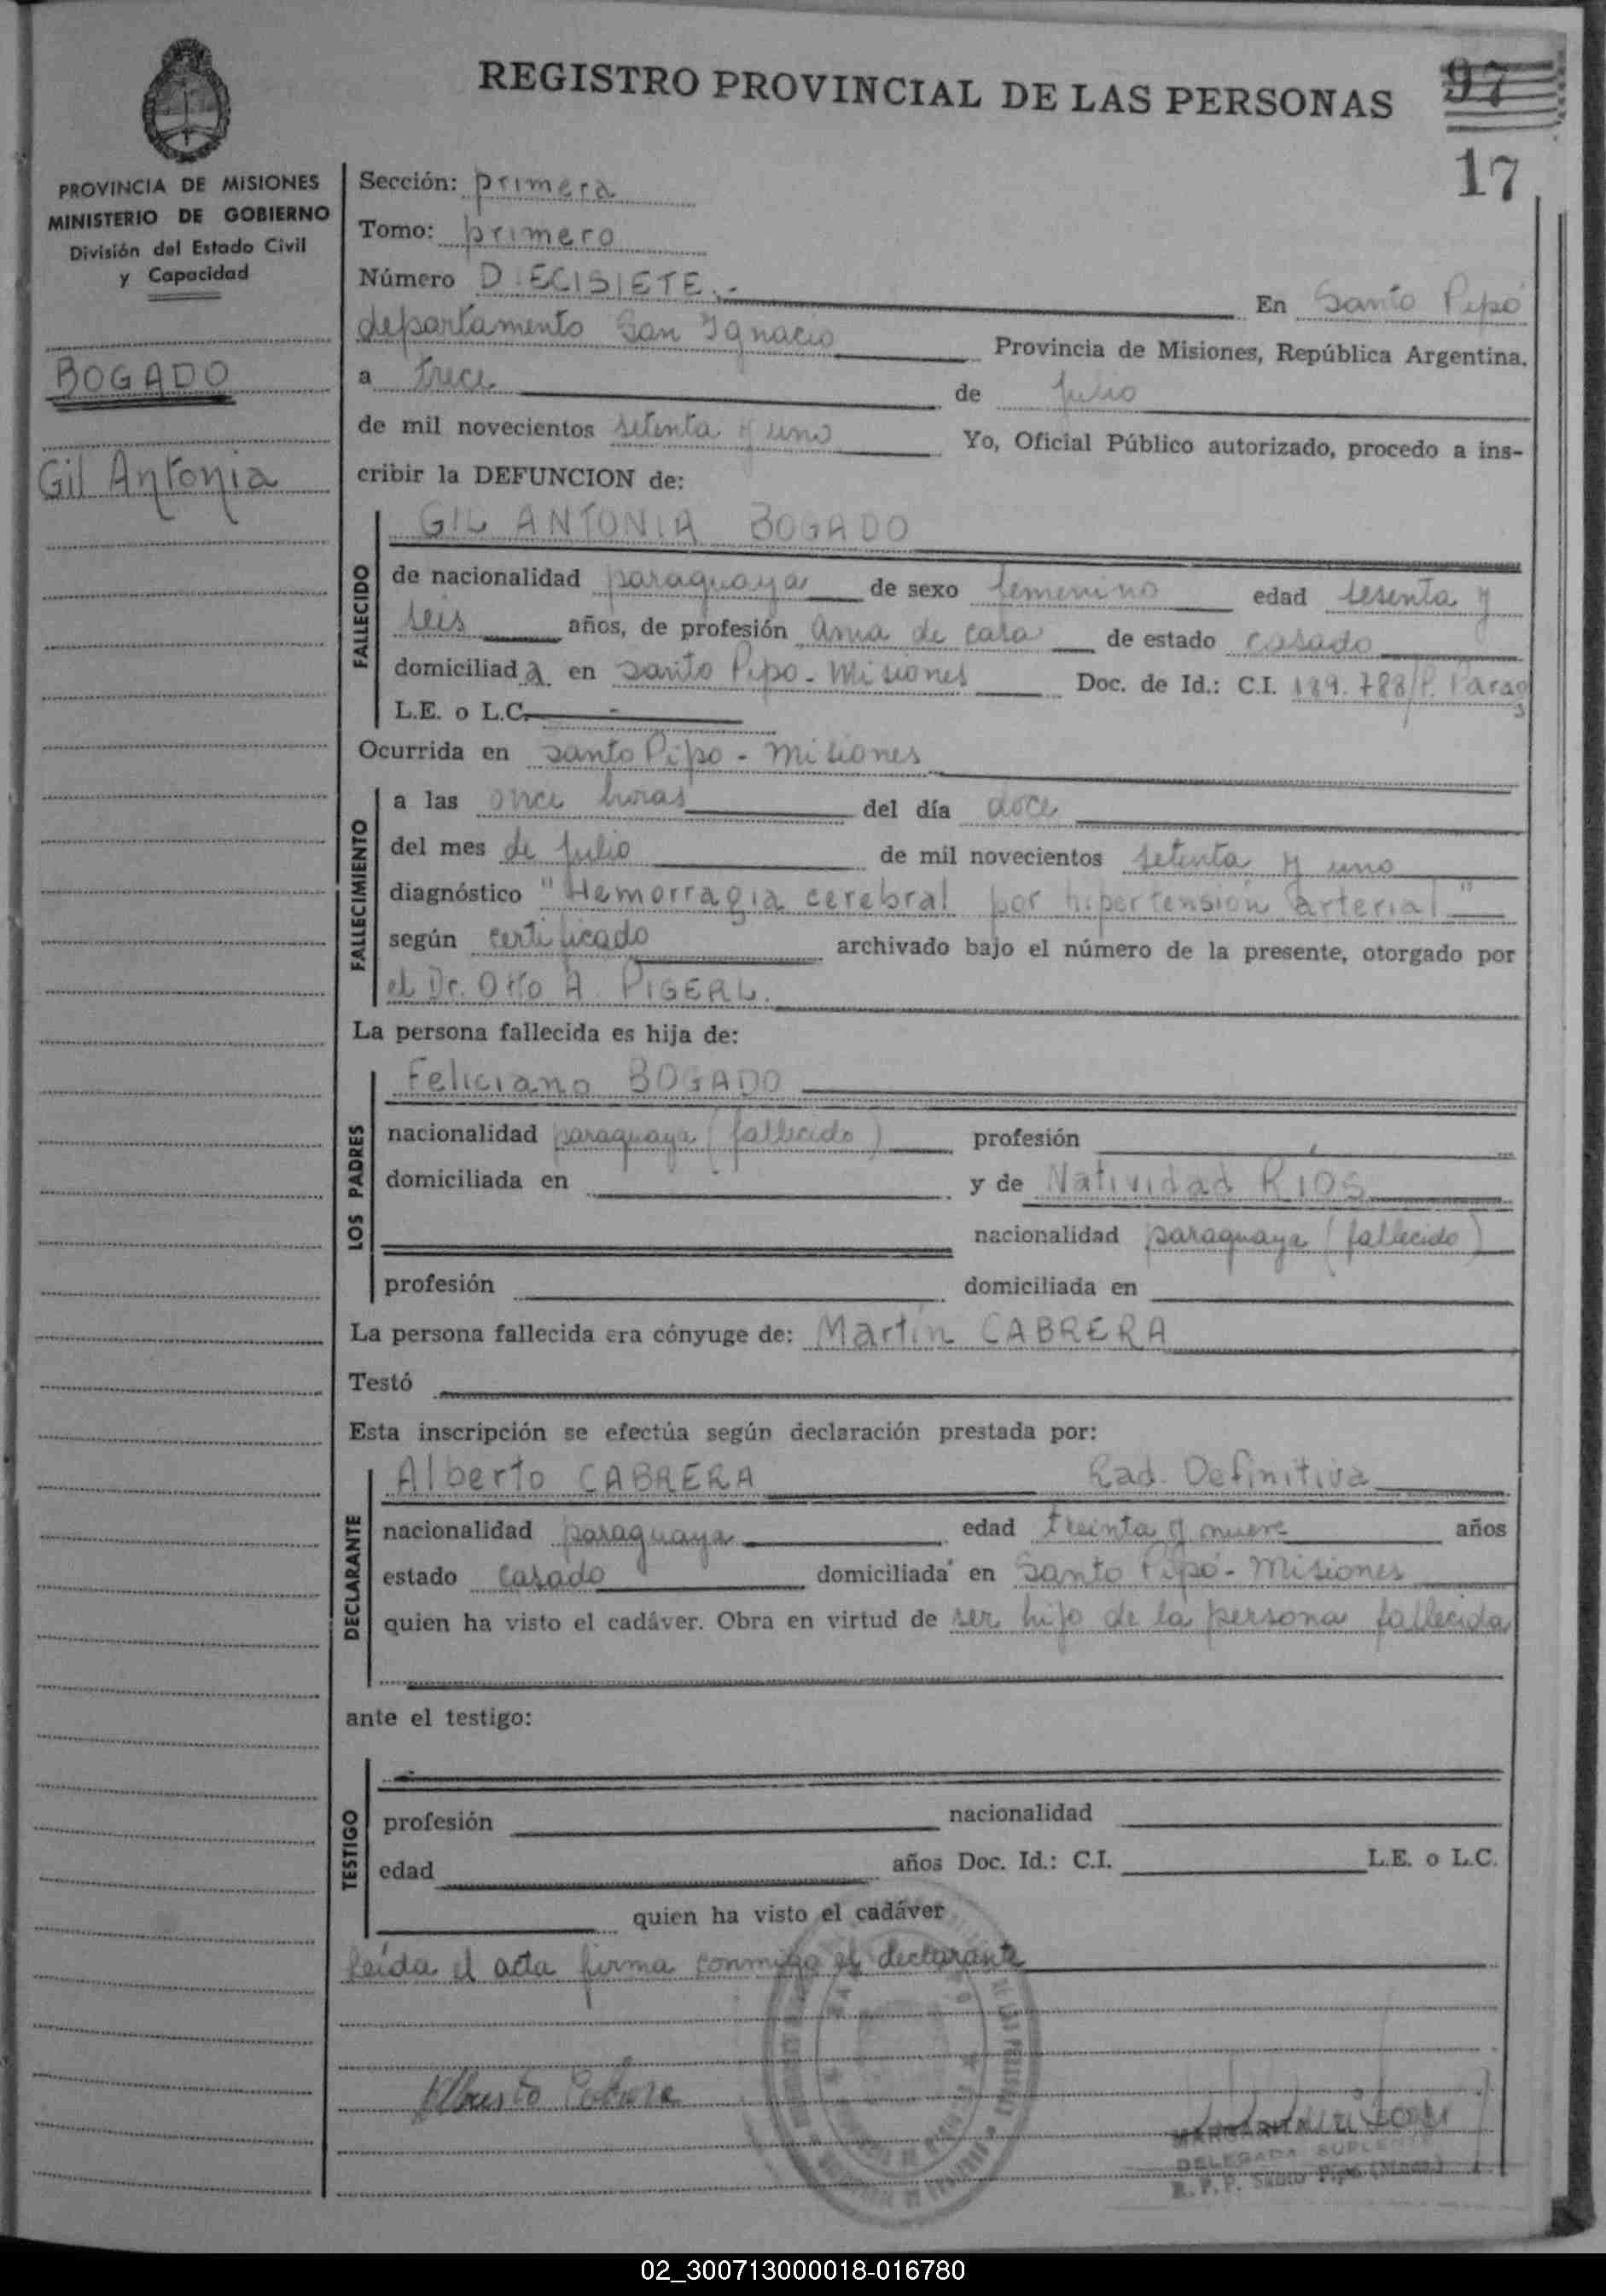 REGISTRO PROVINCIAL DE LAS PERSONAS
97
17
PROVINCIA DE MISIONES
MINISTERIO DE GOBIERNO
División del Estado Civil
y Capacidad
BOGADO
Gil Antonia
Sección: primera
Tomo: primero
Número DIECISIETE.- En Santo Pipó
departamento San Ignacio Provincia de Misiones, República Argentina.
a trece de julio
de mil novecientos setenta y uno Yo, Oficial Público autorizado, procedo a ins-
cribir la DEFUNCION de:
FALLECIDO
GIL ANTONIA BOGADO
de nacionalidad paraguaya de sexo femenino edad sesenta y
seis años, de profesión ama de casa de estado casado
domiciliada en Santo Pipo - Misiones Doc. de Id.: C.I. 189.788/P. Parag
L.E. o L.C. -
Ocurrida en Santo Pipo - Misiones
FALLECIMIENTO
a las once horas del día doce
del mes de julio de mil novecientos setenta y uno
diagnóstico "Hemorragia cerebral por hipertensión arterial"
según certificado archivado bajo el número de la presente, otorgado por
el Dr. Otto A. PIGERL.
La persona fallecida es hija de:
LOS PADRES
Feliciano BOGADO
nacionalidad paraguaya (fallecido) profesión
domiciliada en y de Natividad RIOS
nacionalidad paraguaya (fallecido)
profesión domiciliada en
La persona fallecida era cónyuge de: Martin CABRERA
Testó
Esta inscripción se efectúa según declaración prestada por:
DECLARANTE
Alberto CABRERA Rad. Definitiva
nacionalidad paraguaya edad treinta y nueve años
estado casado domiciliada en Santo Pipó - Misiones
quien ha visto el cadáver. Obra en virtud de ser hijo de la persona fallecida
ante el testigo:
TESTIGO
profesión nacionalidad
edad años Doc. Id.: C.I. L.E. o L.C.
quien ha visto el cadáver
Leída el acta firma conmigo el declarante
Alberto Cabrera
DELEGADA SUPLENTE
R. P. P. Santo Pipó (Mnes.)
02_300713000018-016780